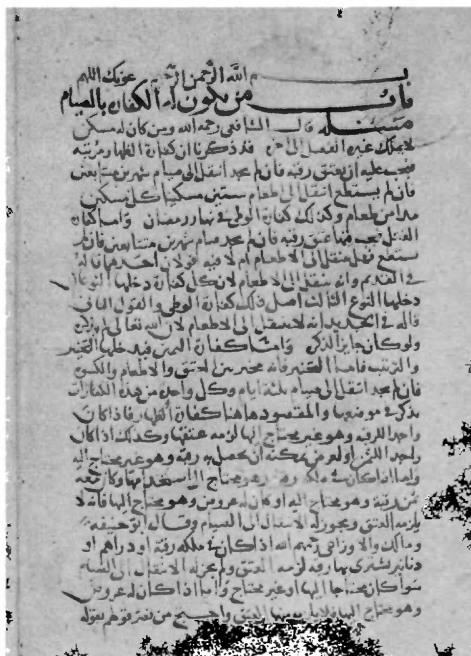 بسم الله الرحمن الرحيم عونك اللهم
باب من يكون له الكفارة بالصيام
مسئلة قال الشافعي رحمه الله ومن كان له مسكن
لا يملك غيره الفصل الى اخره قد ذكرنا ان كفارة الظهار مرتبه
فيجب عليه ان يعتق رقبه فان لم يجد انتقل الى صيام شهرين متتابعين
فان لم يستطع انتقل الى اطعام ستين مسكينا كل مسكين
مدا من طعام وكذلك كفارة الوطى في نهار رمضان واما كفارة
القتل فيجب فيها عتق رقبه فان لم يجد صيام شهرين متتابعين فان لم
يستطع فهل ينتقل الى الاطعام ام لا فيه قولان احدهما قاله
في القديم وانه ينتقل الى الاطعام لان كل كفارة دخلها النوعان
دخلها النوع الثالث اصل ذلك كفارة الوطى والقول الثاني
قاله في الجديد انه لا ينتقل الى الاطعام لان الله تعالى لم يذكره
ولو كان جايز الذكره واما كفارة اليمين فيدخلها التخيير
والترتيب فاما التخيير فانه مخير بين العتق والاطعام والكسوة
فان لم يجد انتقل الى صيام ثلثة ايام وكل واحدة من هذه الكفارات
يذكر في موضعها والمقصود هاهنا كفارة الظهار فاذا كان
واجدا للرقبة وهو غير محتاج اليها لزمه عتقها وكذلك اذا كان
واجدا لثمن او لعرض يمكنه ان يحصل به رقبة وهو غير محتاج اليه
واما اذا كان في ملكه رقبة وهو محتاج الى استخدامها وكان معه
ثمن رقبة وهو محتاج اليه او كان له عروض وهو محتاج اليها فانه لا
يلزمه العتق ويجوز له الانتقال الى الصيام وقال ابو حنيفة
ومالك والاوزاعي رحمهم انه اذا كان في ملكه رقبة او دراهم او
دنانير يشترى بها رقبة لزمه العتق ولم يجز له الانتقال الى الصيام
سوا كان محتاجا اليها او غير محتاج واما اذا كان له عروض
وهو محتاج اليها فلا يلزمه العتق واحتج من نصر قولهم بقوله